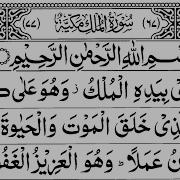 (٦٧) سُوْرَةُ الْمُلْكِ مَكِّيَّةٌ (٧٧)
سْمِ اللّٰهِ الرَّحْمٰنِ الرَّحِيْمِ
بِيَدِهِ الْمُلْكُ ز وَهُوَ عَلٰى
ذِىْ خَلَقَ الْمَوْتَ وَالْحَيٰوةَ
نُ عَمَلًا ؕ وَهُوَ الْعَزِيْزُ الْغَفُوْ